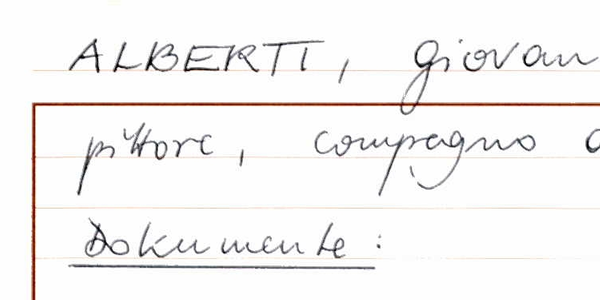 ALBERTI, Giovan
pittore, compagno
Dokumente: